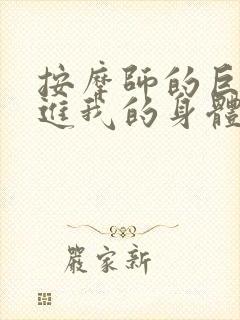 按摩師的巨
進我的身體
嚴家新